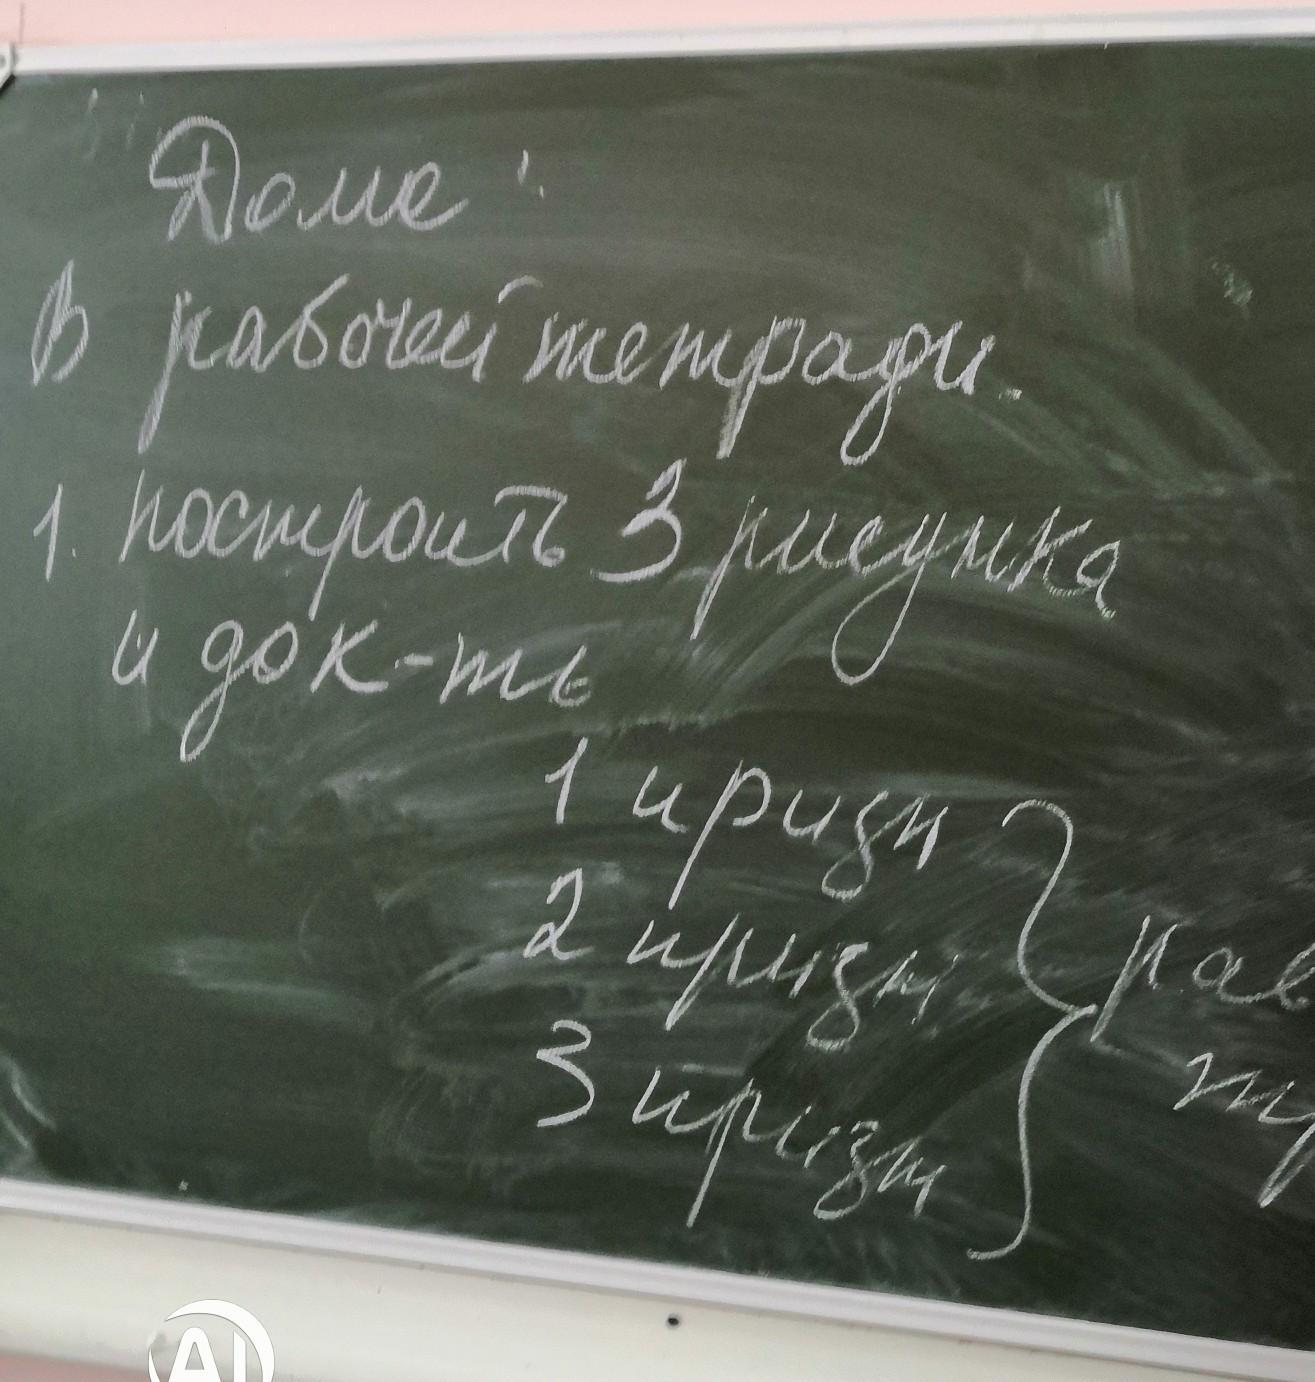 Дома:
В рабочей тетради.
1. построить 3 рисунка
и док-ть
1 призн
2 призн
3 призн
рав
тр
AI